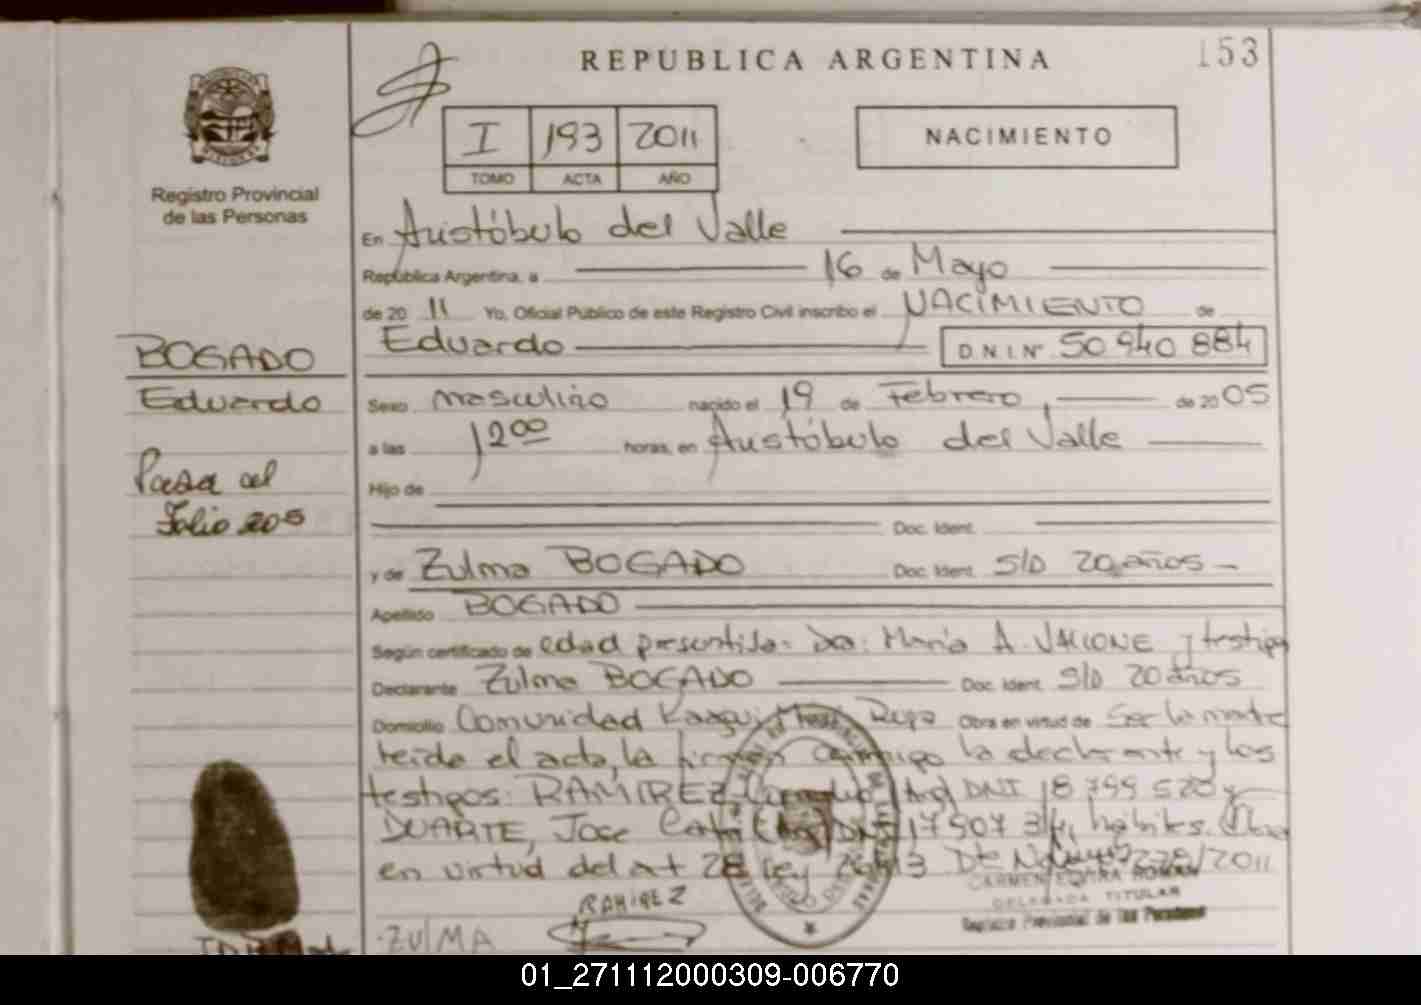 REPUBLICA ARGENTINA
153
I 193 2011
TOMO ACTA AÑO
NACIMIENTO
Registro Provincial
de las Personas
En Aristóbulo del Valle
República Argentina, a 16 de Mayo
de 20 11 Yo, Oficial Público de este Registro Civil inscribo el NACIMIENTO de
Eduardo D N I Nº 50 940 884
BOGADO
Eduardo
Pasa al
Folio 205
Sexo masculino nacido el 19 de Febrero, de 20 05
a las 12 00 horas, en Aristóbulo del Valle
Hijo de
Doc. Ident.
y de Zulma BOGADO Doc. Ident. S/D 20 años
Apellido BOGADO
Según certificado de edad presuntiva- Dra: María A. y testigos
Declarante Zulma BOGADO Doc. Ident. S/D 20 años
Domicilio Comunidad Obra en virtud de Ser la madre
leído el acta, la firman conmigo la declarante y los
testigos: RAMIREZ, DNI 18 799 520 y
DUARTE, Jose DNI 17 507 hábiles.
en virtud del art 28 ley 26413 Dto /2011
CARMEN ROMAN
DELEGADA TITULAR
Registro Provincial de las Personas
RAMIREZ
ZULMA
01_271112000309-006770